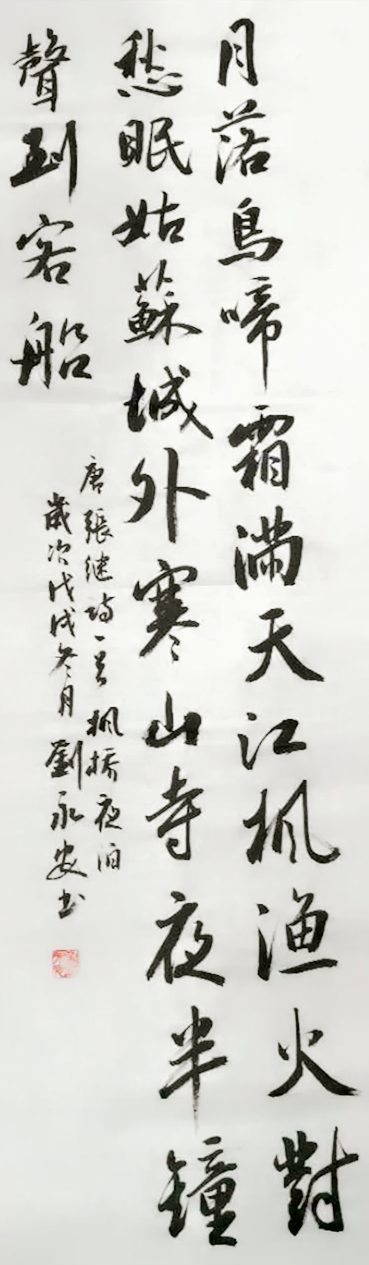 月落烏啼霜滿天江枫渔火對
愁眠姑蘇城外寒山寺夜半鐘
聲到客船
唐張继诗一首枫橋夜泊
歲次戊戌冬月劉永安书